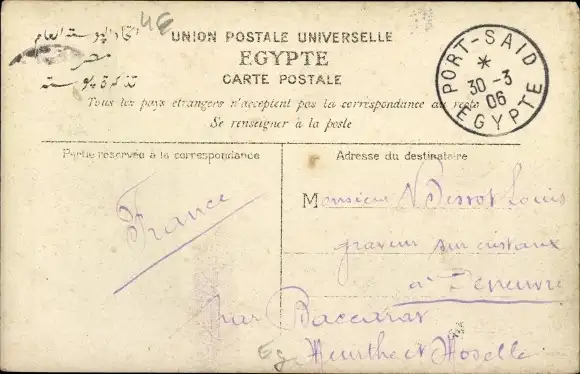 4E
اتحاد البوستة العام
مصر
تذكرة بوستة
UNION POSTALE UNIVERSELLE
EGYPTE
CARTE POSTALE
Tous les pays étrangers n'acceptent pas la correspondance au recto
Se renseigner à la poste
PORT-SAID
*
30 -3
06
EGYPTE
Partie réservée à la correspondance
Adresse du destinataire
France
Monsieur Louis
graveur sur cristaux
à Deneuvre
par Baccarat
Eg
Meurthe et Moselle